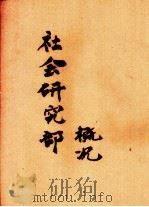 社会研究部
概况